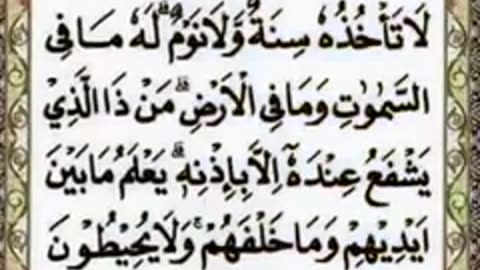 لَا تَأْخُذُهٗ سِنَةٌ وَّلَا نَوْمٌ ؕ لَهٗ مَا فِی
السَّمٰوٰتِ وَمَا فِی الْاَرْضِ ؕ مَنْ ذَا الَّذِیْ
یَشْفَعُ عِنْدَهٗۤ اِلَّا بِاِذْنِهٖ ؕ یَعْلَمُ مَا بَیْنَ
اَیْدِیْهِمْ وَمَا خَلْفَهُمْ ۚ وَلَا یُحِیْطُوْنَ